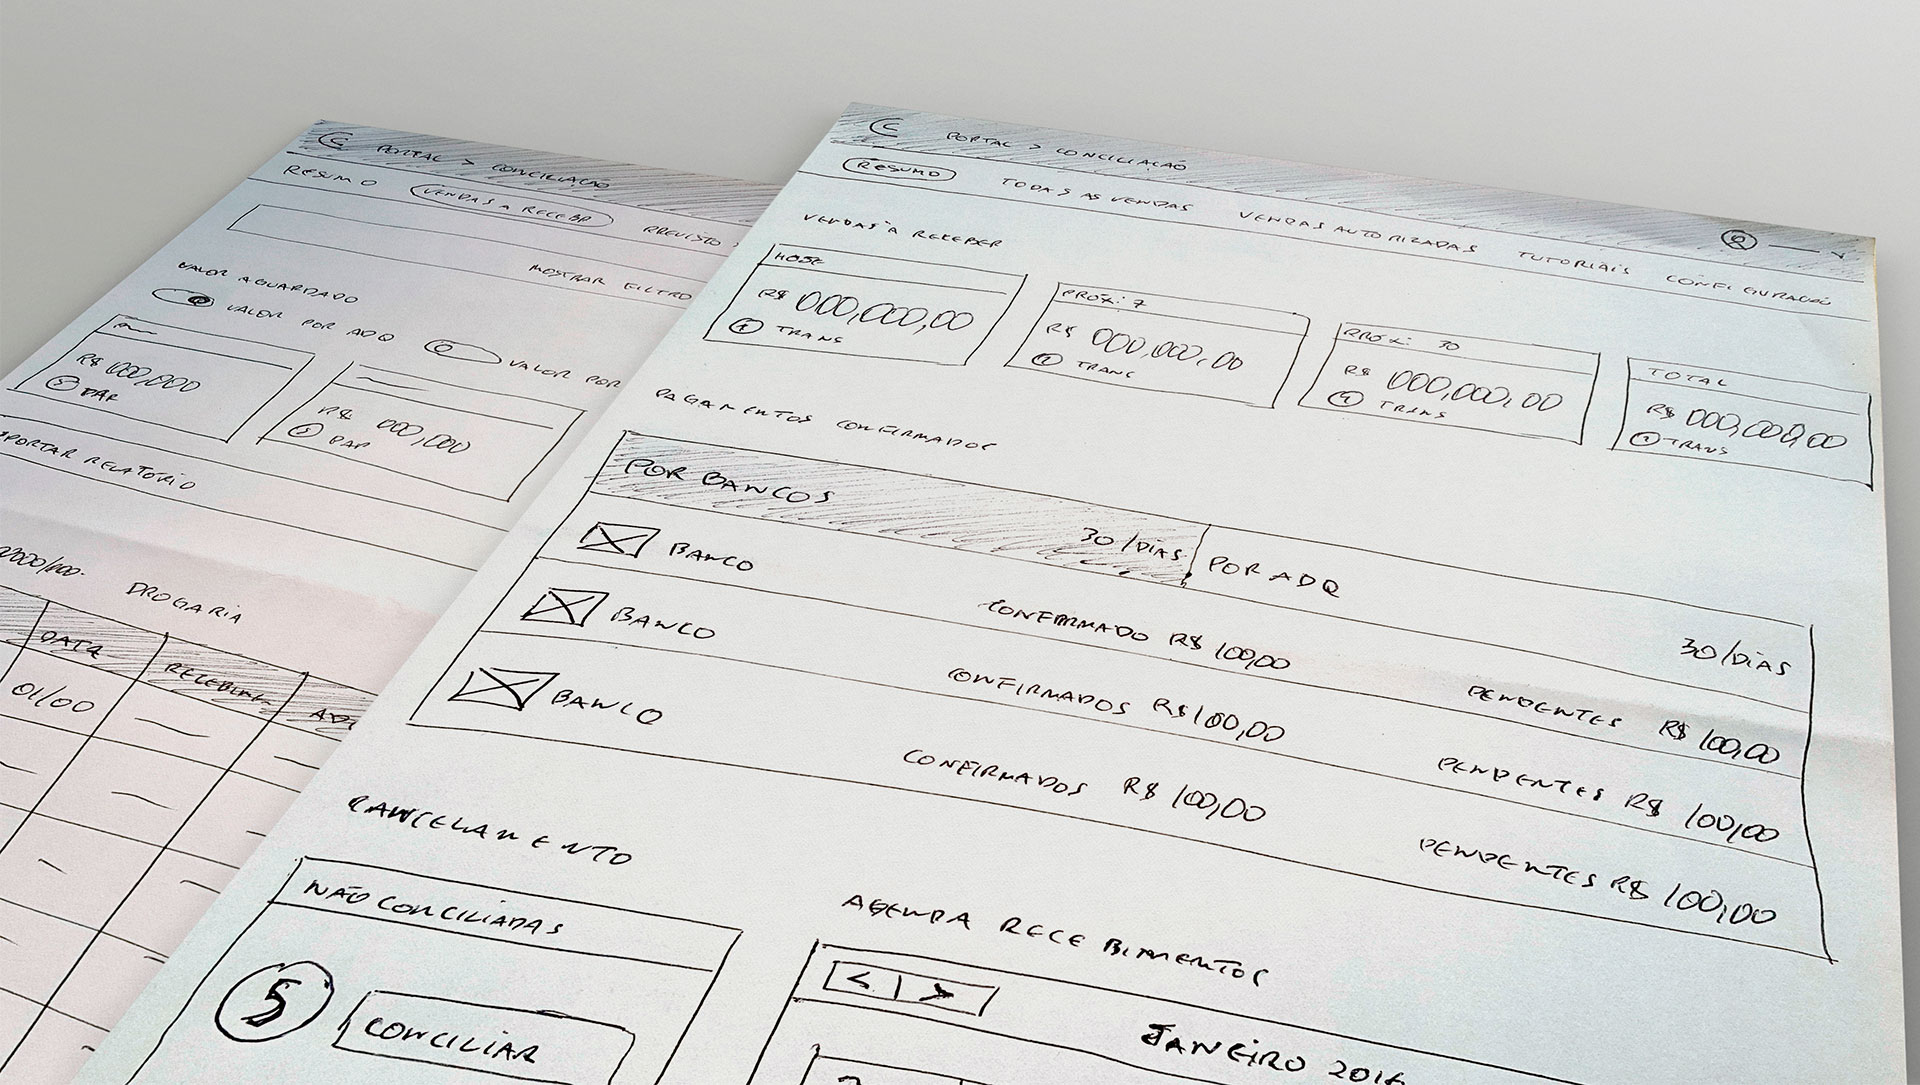 PORTAL > CONCILIAÇÃO
RESUMO VENDAS A RECEBR PREVISTO
MOSTRAR FILTRO
VALOR AGUARDADO
VALOR POR ADQ VALOR POR
R$ 000,000
5 PAR
R$ 000,000
5 PAR
PORTAR RELATÓRIO
DROGARIA
DATA RECEBIM. ADQ
01/00
C PORTAL > CONCILIAÇÃO
RESUMO TODAS AS VENDAS VENDAS AUTORIZADAS TUTORIAIS CONFIGURAÇÃO
VENDAS A RECEBER
HOJE
R$ 000,000,00
TRANS
PRÓX: 7
R$ 000,000,00
TRANS
PRÓX: 30
R$ 000,000,00
TRANS
TOTAL
R$ 000,000,00
TRANS
PAGAMENTOS CONFIRMADOS
POR BANCOS 30/DIAS POR ADQ 30/DIAS
BANCO CONFIRMADO R$ 100,00 PENDENTES R$ 100,00
BANCO CONFIRMADOS R$ 100,00 PENDENTES R$ 100,00
BANCO CONFIRMADOS R$ 100,00 PENDENTES R$ 100,00
CANCELAMENTO
NÃO CONCILIADAS
5 CONCILIAR
AGENDA RECEBIMENTOS
< | >
JANEIRO 2016